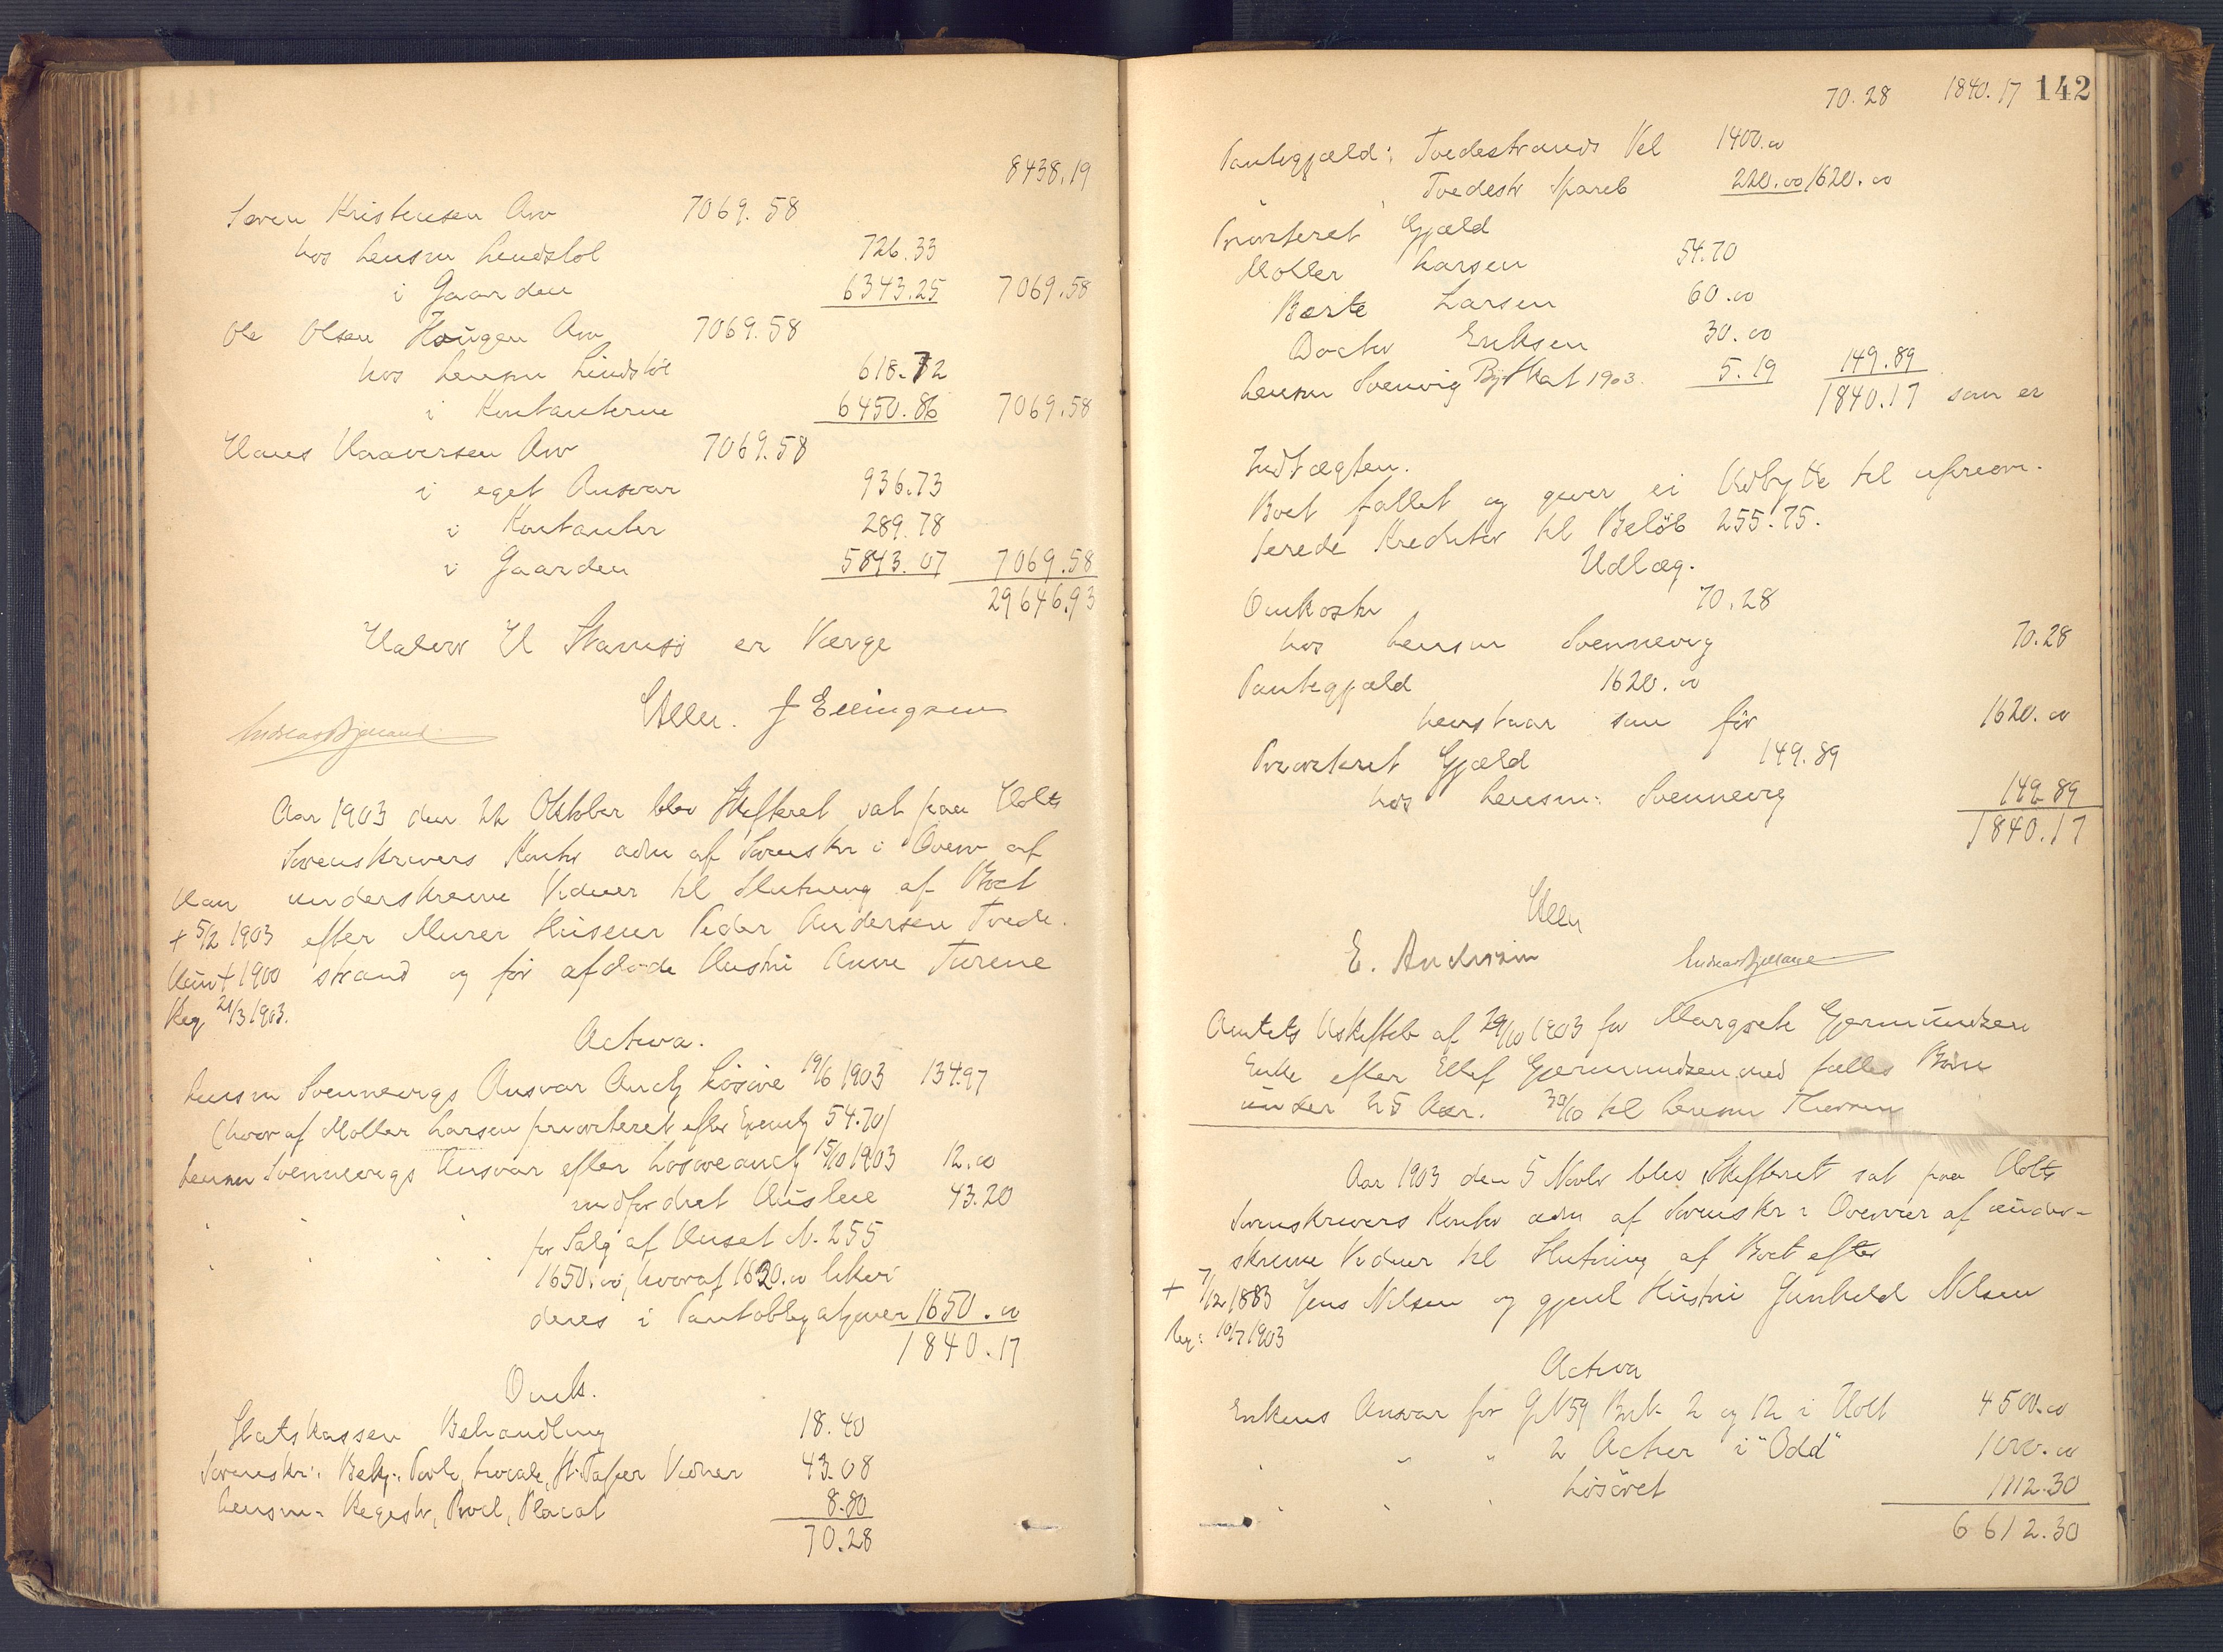 8438.19
Søren Kristensen Arv 7069.58
hos Lensm Lindstøl 726.33
i Gaarden 6343.25 7069.58
Ole Olsen Haugen Arv 7069.58
hos Lensm Lindstøl 618.72
i Kontanterne 6450.86 7069.58
Hans Haaversen Arv 7069.58
i eget Ansvar 936.73
i Kontanter 289.78
i Gaarden 5843.07 7069.58
29646.93
Halvor H er Værge
Aller. J Ellingsen
Andreas Bjelland
Aar 1903 den 22 Oktober blev Skifteret sat paa Holts
Sorenskrivers Kontor adm af Sorenskr i Overv af
underskrevne Vidner til Slutning af Boet
Han + 5/2 1903 efter Murer Huseier Peder Andersen Tvede-
Hun + 1900 strand og før afdøde Hustru Anne Turine
Reg 21/3 1903.
Activa.
Lensm Svennevigs Ansvar Auch Løsøre 19/6 1903 134.97
(hvoraf Møller Larsen prioriteret efter 54.70)
Lensm Svennevigs Ansvar efter Løsøreauch 15/10 1903 12.00
" " indfordret Husleie 43.20
" " " for Salg af Huset N. 255
1650.00, hvoraf 1620.00 likvi-
deres i Pantobligationer 1650.00
1840.17
Omk.
Statskassen Behandling 18.40
Sorenskr: Bekj: Porto, Locale, St. Papir Vidner 43.08
Lensm. Registr, Procl, Placat 8.80
70.28
70.28 1840.17 142
Pantegjæld: Tvedestrands Vel 1400.00
" Tvedestr Spareb 220.00 1620.00
Prioriteret Gjæld
Møller Larsen 54.70
Børte Larsen 60.00
Doctor Eriksen 30.00
Lensm Svenvig Byskat 1903. 5.19 149.89
1840.17 som er
Indtægten.
Boet fallet og giver ei Udbytte til uprior-
terede Kreditor til Beløb 255.75.
Udlæg.
Omkostn 70.28
hos Lensm Svennevig 70.28
Pantegjæld 1620.00
henstaar som før 1620.00
Prioriteret Gjæld 149.89
hos Lensm: Svennevig 149.89
1840.17
Aller
E. Andersen Andreas Bjelland
Amtets Uskifteb af 29/10 1903 for Margrete Gjermundsen
Enke efter Ellef Gjermundsen med fælles Børn
under 25 Aar. 30/10 til Lensm
Aar 1903 den 5 Novbr blev Skifteret sat paa Holts
Sorenskrivers Kontor adm af Sorenskr i Overvær af under-
skrevne Vidner til Slutning af Boet efter
+ 7/12 1883 Jens Nilsen og gjenl Hustru Gunhild Nilsen
Reg: 10/7 1903
Activa
Enkens Ansvar for G N 59 Brk. 2 og 12 i Holt 4500.00
" " " 2 Actier i "Odd" 1000.00
" " " Løsøret 1112.30
6612.30